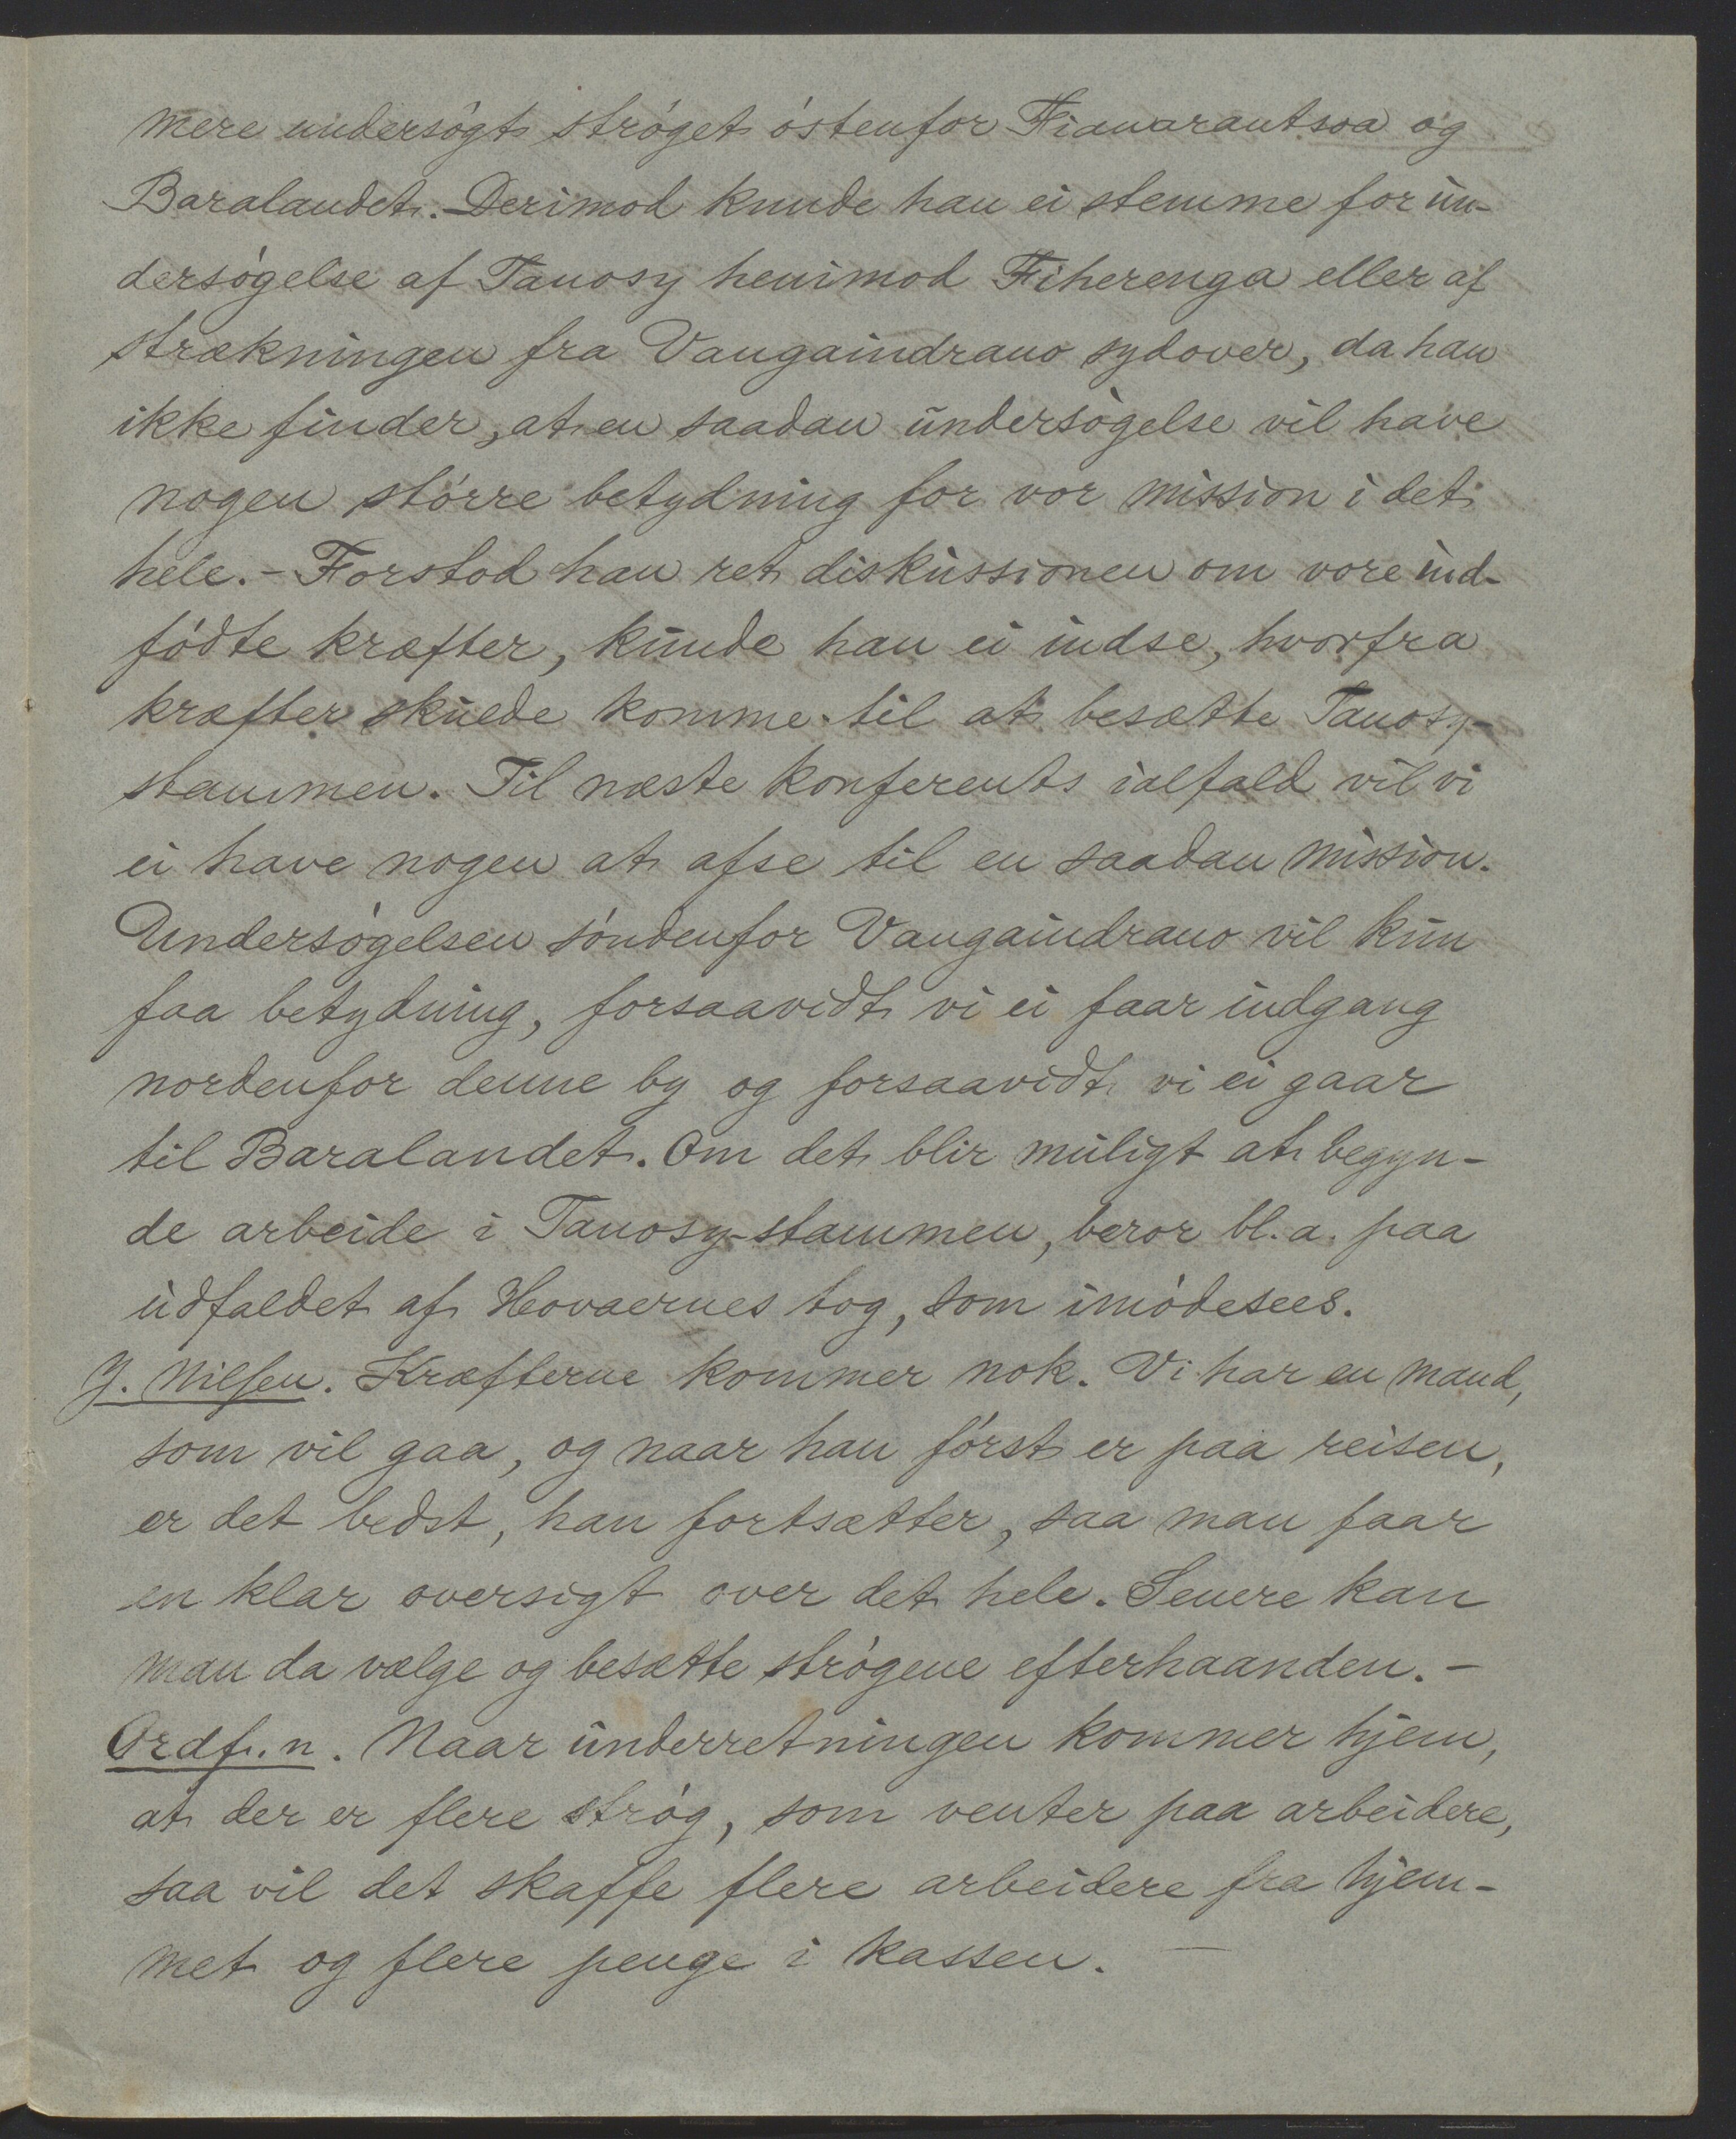 mere undersøgt strøget østenfor Fianarantsoa og
Baralandet. Derimod kunde han ei stemme for un-
dersøgelse af Tanosy henimod Fiherenga eller af
strækningen fra Vangaindrano sydover, da han
ikke finder, at en saadan undersøgelse vil have
nogen større betydning for vor mission i det
hele. - Forstod han ret diskussionen om vore ind-
fødte kræfter, kunde han ei indse, hvorfra
kræfter skulde komme til at besætte Tanosy-
stammen. Til næste konferents ialfald vil vi
ei have nogen at afse til en saadan mission.
Undersøgelsen søndenfor Vangaindrano vil kun
faa betydning, forsaavidt vi ei faar indgang
nordenfor denne by og forsaavidt vi ei gaar
til Baralandet. Om det blir muligt at begyn-
de arbeide i Tanosy-stammen, beror bl. a. paa
udfaldet af Hovaernes tog, som imødesees.
J. Nilsen. Kræfterne kommer nok. Vi har en mand,
som vil gaa, og naar han først er paa reisen,
er det bedst, han fortsætter, saa man faar
en klar oversigt over det hele. Senere kan
man da vælge og besætte strøgene efterhaanden. -
Ordf. n. Naar underretningen kommer hjem,
at der er flere strøg, som venter paa arbeidere,
saa vil det skaffe flere arbeidere fra hjem-
met og flere penge i kassen. -